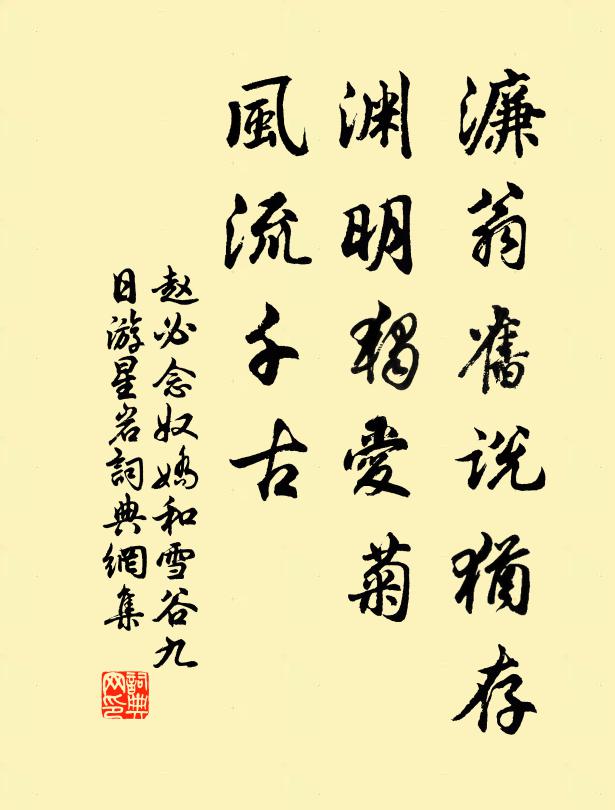 濂翁舊説猶存
渊明獨愛菊
風流千古
赵必念奴嬌和雪谷九
日游星岩詞典網集
詞典
网印